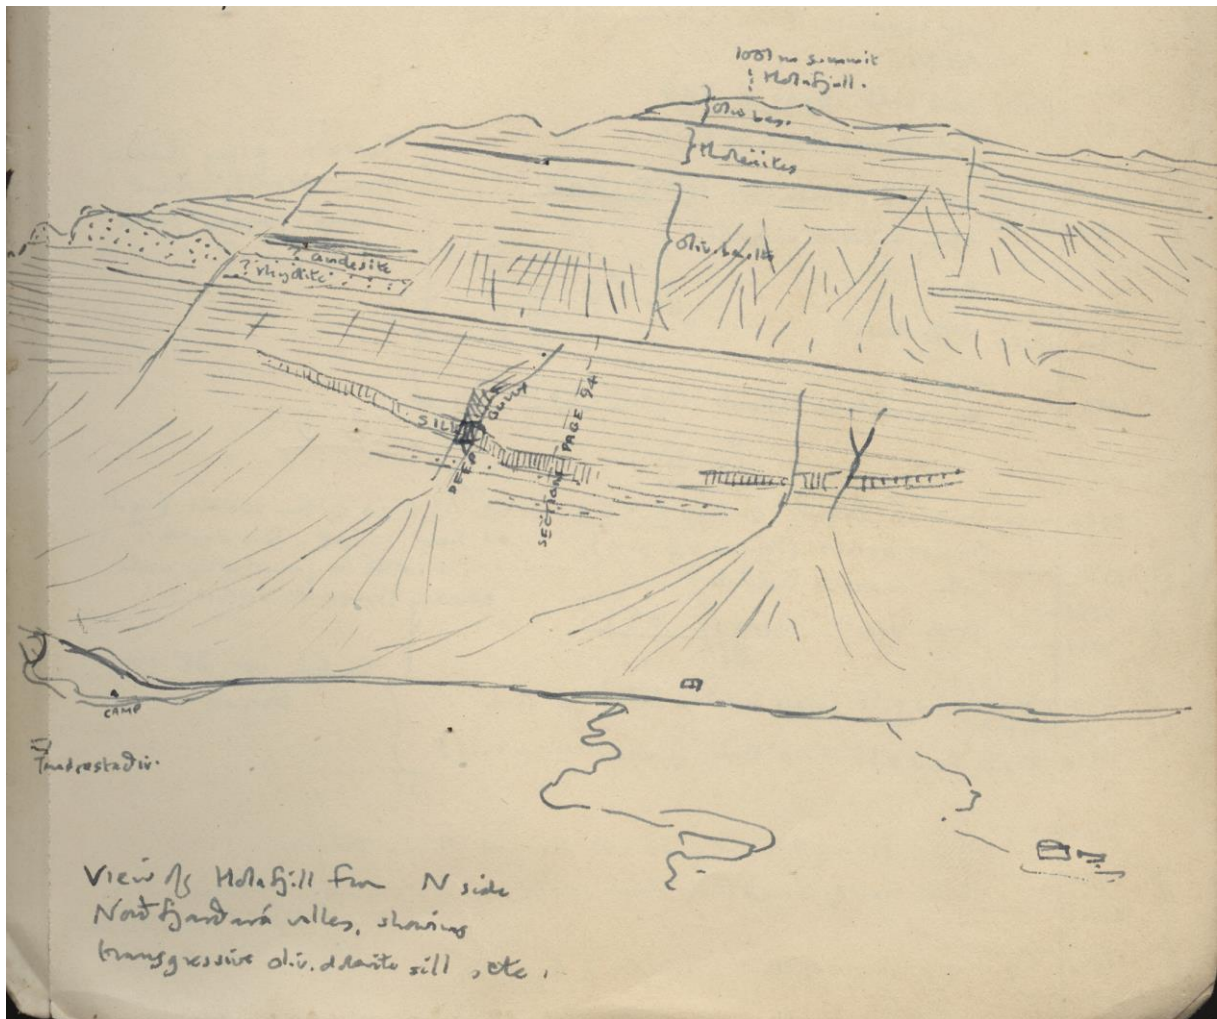 1001 m summit
Holafjall.
oliv bas.
tholeiites
oliv. basalts
? andesite
? rhyolite
SILL
DEEP GULLY
SECTION PAGE 94
CAMP
View of Holafjall from N side
Norðfjarðará valley, showing
transgressive oliv. dolerite sill, etc.